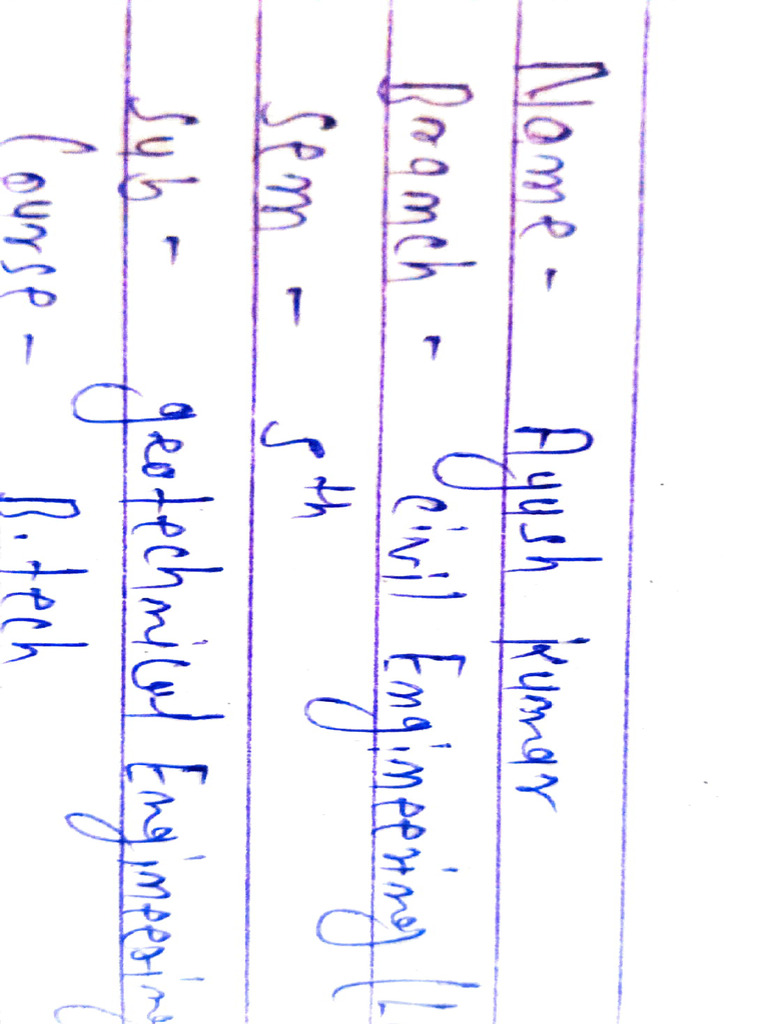 Name - Ayush kumar
Branch - civil Engineering (L
Sem - 5th
Sub - geotechnical Engineering
Course - B.tech